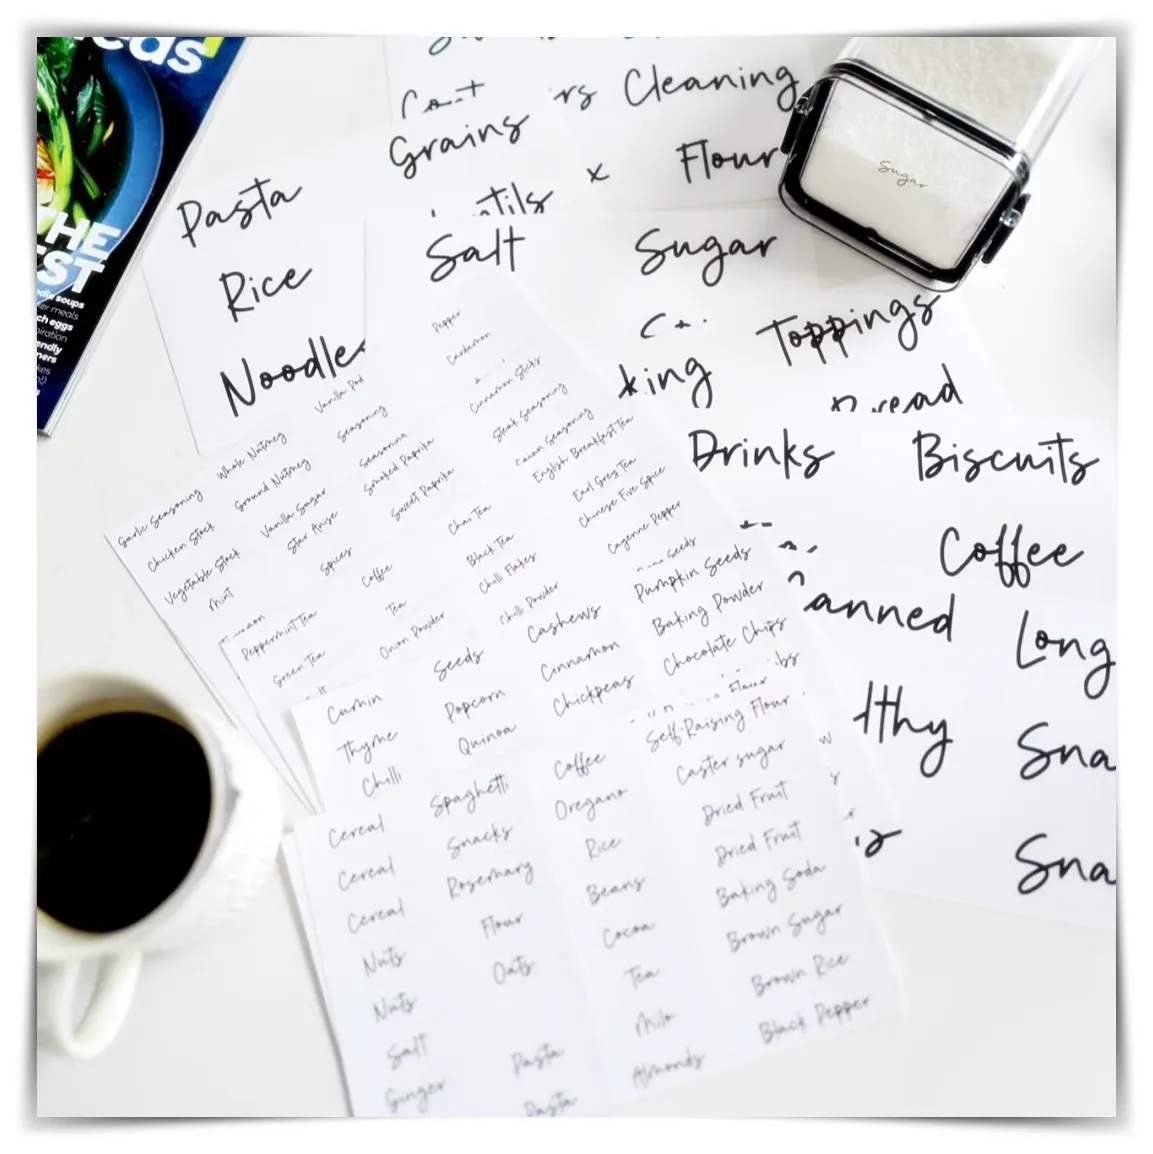 THE
soups
meals
eggs
Cleaning
Grains
Flour
Sugar
Pasta
Salt
Sugar
Rice
Toppings
Noodles
Drinks
Biscuits
Coffee
Long
Pepper
Cardamon
Cinnamon Sticks
Vanilla Pod
Steak Seasoning
Whole Nutmeg
Seasoning
Cajun Seasoning
Garlic Seasoning
Ground Nutmeg
Seasoning
English Breakfast Tea
Chicken Stock
Vanilla Sugar
Smoked Paprika
Earl Grey Tea
Vegetable Stock
Star Anise
Sweet Paprika
Chinese Five Spice
Mint
Spices
Chai Tea
Cayenne Pepper
Peppermint Tea
Coffee
Black Tea
Green Tea
Tea
Chilli Flakes
Onion Powder
Chilli Powder
Pumpkin Seeds
Cumin
Seeds
Cashews
Baking Powder
Thyme
Popcorn
Cinnamon
Chocolate Chips
Chilli
Quinoa
Chickpeas
Flour
Cereal
Spaghetti
Coffee
Self-Raising Flour
Cereal
Snacks
Oregano
Caster sugar
Cereal
Rosemary
Rice
Dried Fruit
Nuts
Flour
Beans
Dried Fruit
Nuts
Oats
Cocoa
Baking Soda
Salt
Tea
Brown Sugar
Ginger
Pasta
Milo
Brown Rice
Pasta
Almonds
Black Pepper